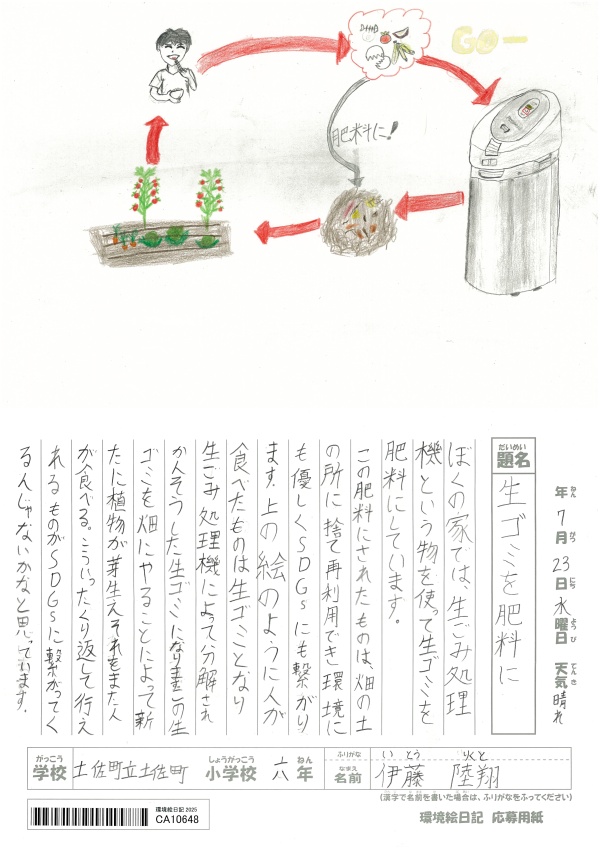 GO—
肥料に!
年 7月 23日 水曜日 天気 晴れ
ねん がつ にち ようび てんき
だいめい
題名
生ゴミを肥料に
ぼくの家では、生ごみ処理
機という物を使って生ゴミを
肥料にしています。
この肥料にされたものは、畑の土
の所に捨て再利用でき環境に
も優しくSDGsにも繋がり
ます。上の絵のように人が
食べたものは生ゴミとなり
生ごみ処理機によって分解され
かんそうした生ゴミになりその生
ゴミを畑にやることによって新
たに植物が芽生えそれをまた人
が食べる。こういったくり返して行え
れるものがSDGsに繋がってく
るんじゃないかなと思っています。
がっこう
学校
土佐町立土佐町
しょうがっこう
小学校
六
ねん
年
ふりがな
いとう りくと
なまえ
名前
伊藤 陸翔
(漢字で名前を書いた場合は、ふりがなをふってください)
環境絵日記 2025
CA10648
環境絵日記 応募用紙